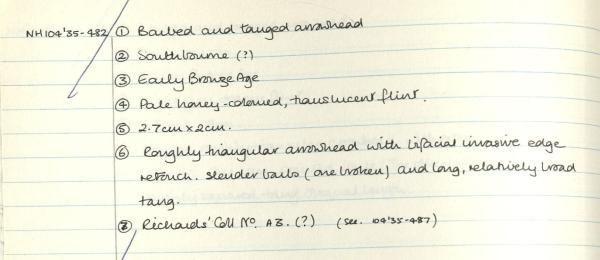 NH104'35-482 ① Barbed and tanged arrowhead
② Southbourne (?)
③ Early Bronze Age
④ Pale honey-coloured, translucent flint.
⑤ 2.7cm x 2cm.
⑥ Roughly triangular arrowhead with bifacial invasive edge
retouch. Slender barbs (one broken) and long, relatively broad
tang.
⑧ Richards' Coll No. A3. (?) (see. 104'35-487)